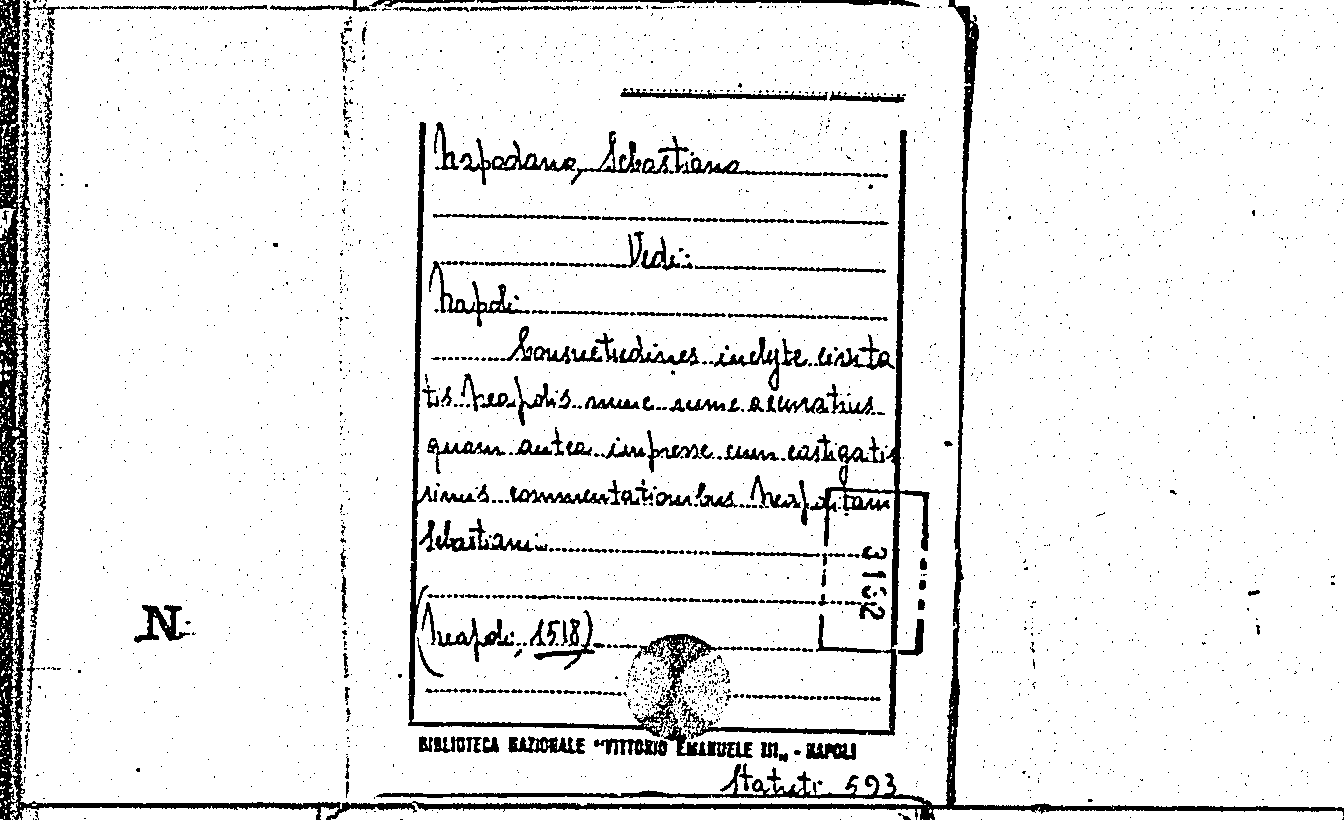 Napodano, Sebastiano
Vedi:
Napoli
Consuetudines inclyte civita
tis Neapolis nunc sume acuratius
quam antea impresse cum castigatis
simis commentationibus Neapolitani
Sebastiani
3152
(Neapoli, 1518)
N.
BIBLIOTECA NAZIONALE "VITTORIO EMANUELE III„ - NAPOLI
Statuti 593